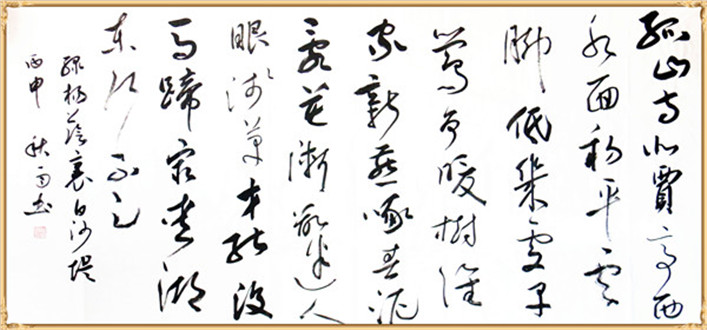 孤山寺北賈亭西
水面初平雲
脚低幾處早
鶯爭暖樹誰
家新燕啄春泥
亂花漸欲迷人
眼浅草才能没
馬蹄最愛湖
東行不足
綠楊蔭裏白沙堤
丙申 秋雨书